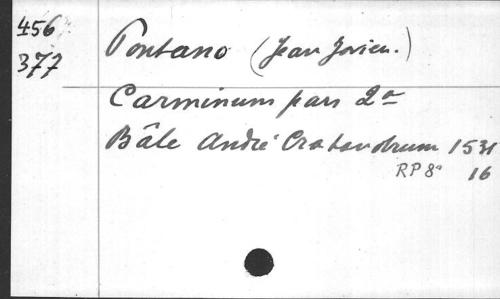 456
377
Pontano (Jean Jovien.)
Carminum pars 2a
Bâle André Cratandrum 1531
RP 8° 16